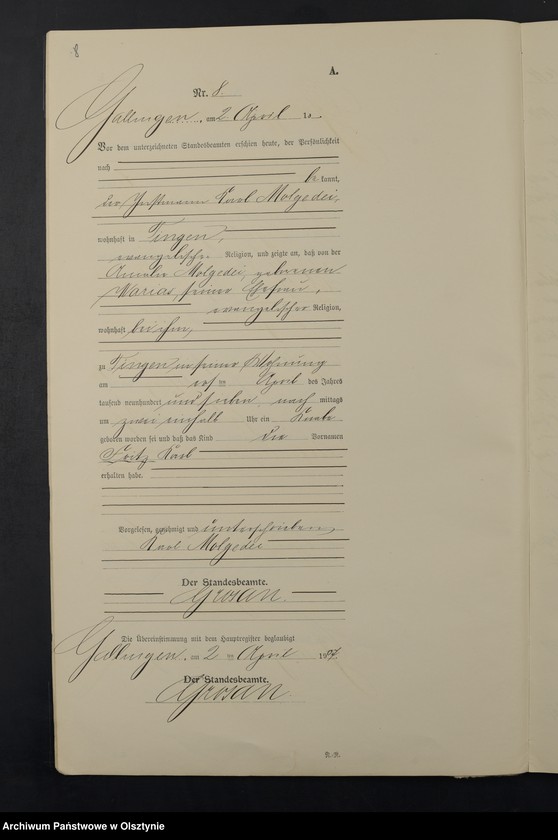 8
A.
Nr. 8
Gallingen, am 2 April 19
Vor dem unterzeichneten Standesbeamten erschien heute, der Persönlichkeit
nach
be kannt,
der Instmann Karl Molgedei,
wohnhaft in Tingen,
evangelischer Religion, und zeigte an, daß von der
Amalie Molgedei, geborenen
seiner Ehefrau,
evangelischer Religion,
wohnhaft bei ihm,
zu Tingen in seiner Wohnung
am ersten April des Jahres
tausend neunhundert und sieben nach mittags
um zwei einhalb Uhr ein Knabe
geboren worden sei und daß das Kind die Vornamen
Fritz Karl
erhalten habe.
Vorgelesen, genehmigt und unterschrieben
Karl Molgedei
Der Standesbeamte.
Grosan.
Die Übereinstimmung mit dem Hauptregister beglaubigt
Gallingen, am 2 ten April 1907.
Der Standesbeamte.
Grosan.
Archiwum Państwowe w Olsztynie